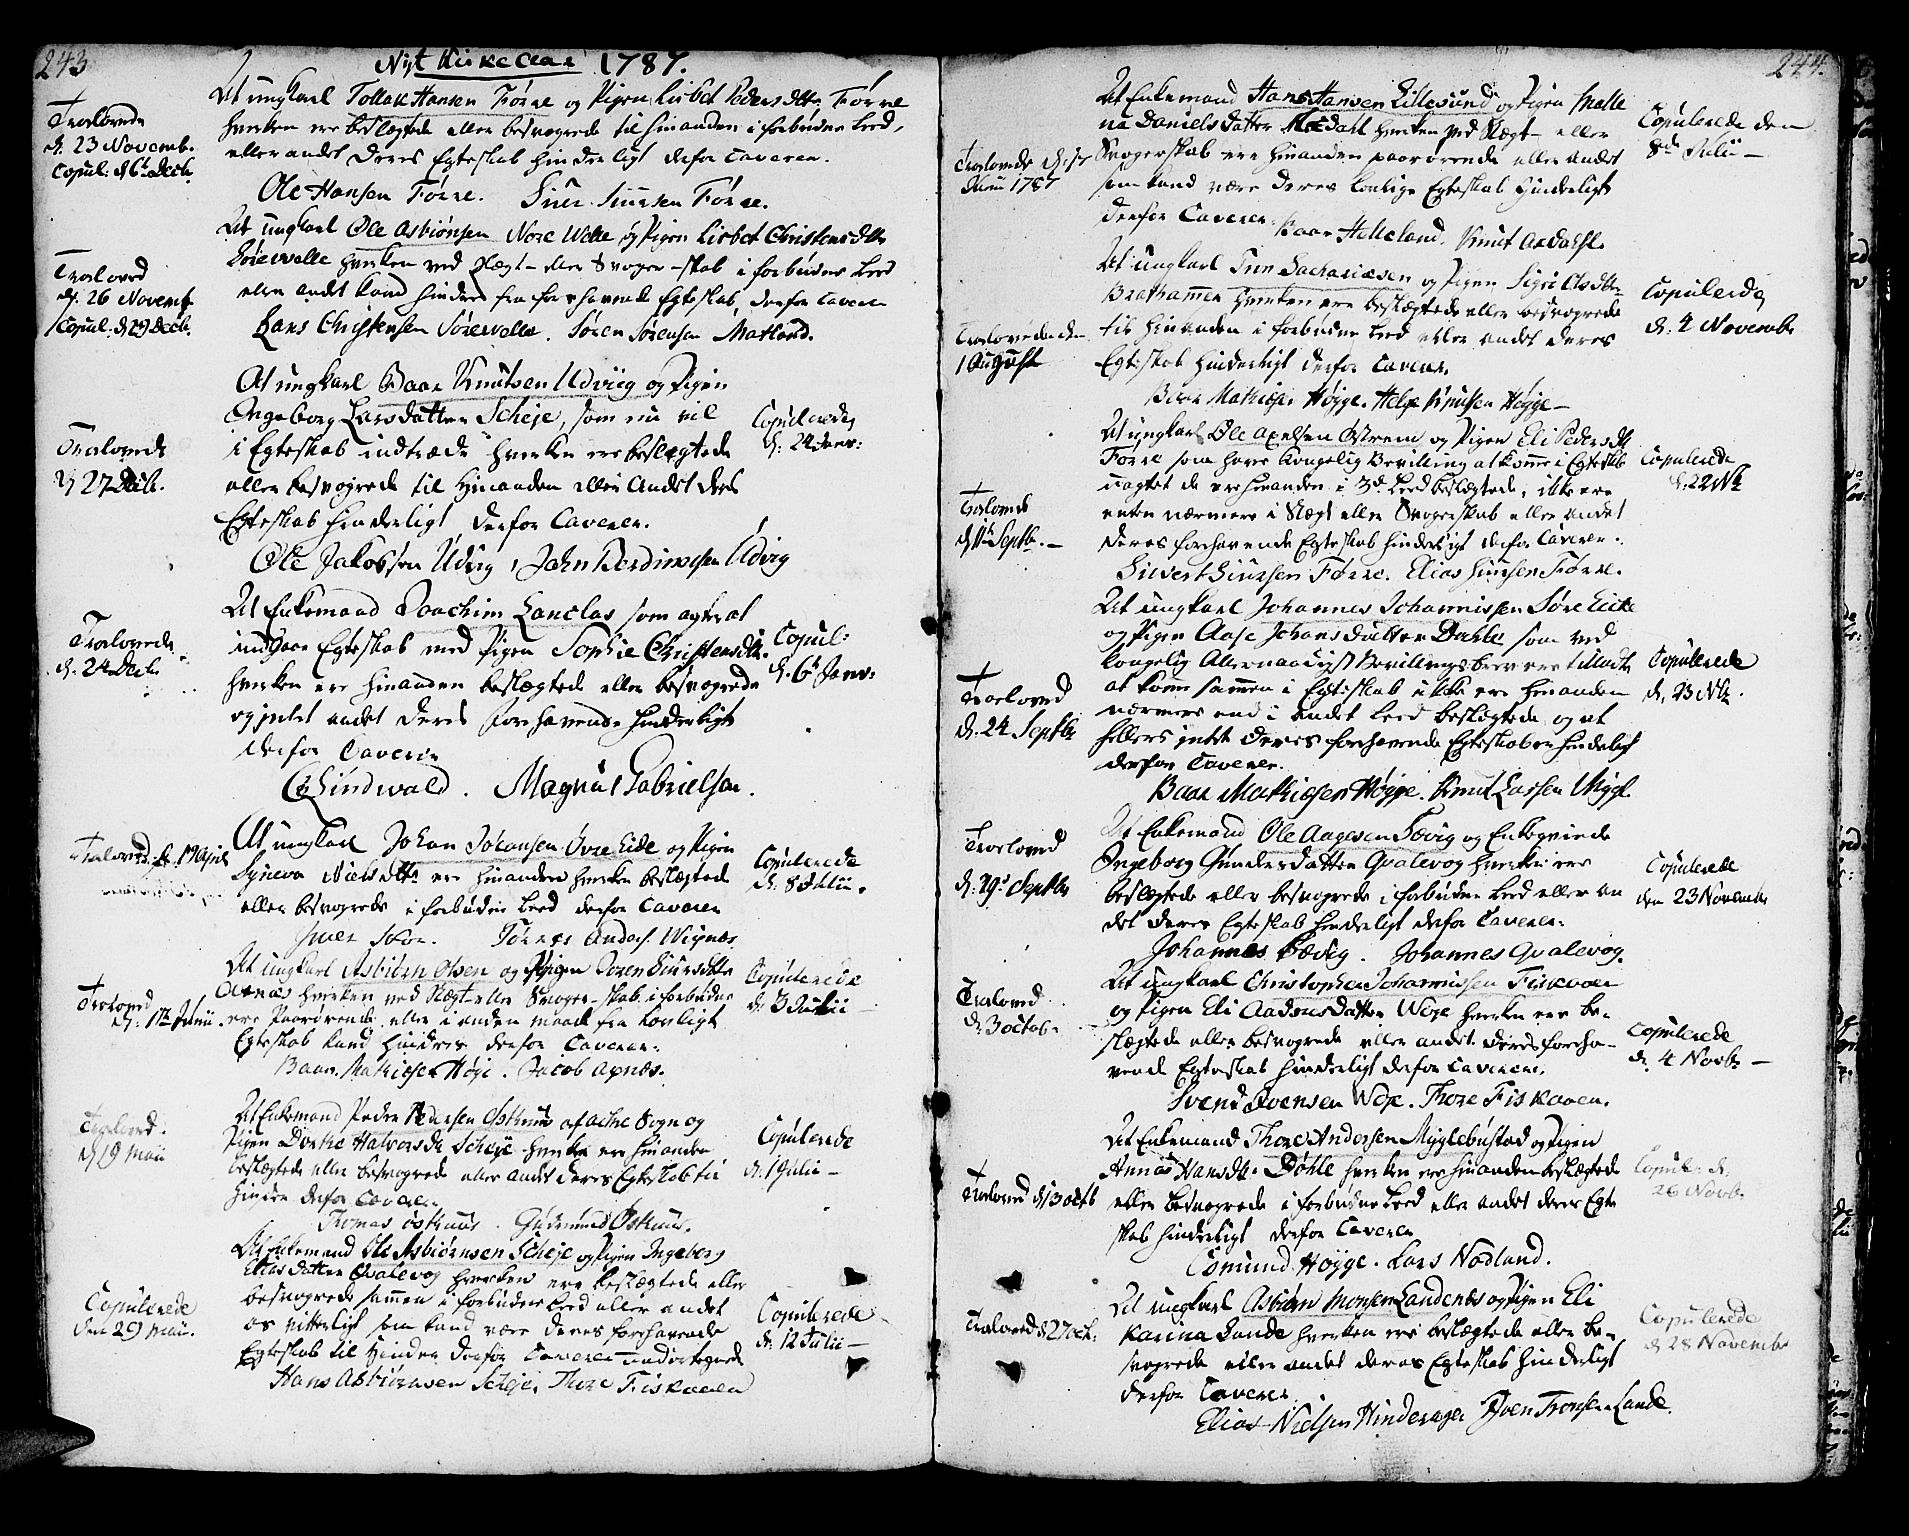 243
Nyt Kirke Aar 1787.
Trolovede
d. 23 Novemb.
Copul: d 6t Decb.
At ungkarl Tollak Hansen Førre og Pigen Lisbet Peders dttr Førre
hverken ere beslægtede eller besvogrede til hinanden i forbudne Leed,
eller andet Deres Egteskab hinderligt derfor Caverer.
Ole Hansen Førre. Siur Siursen Førre.
Trolovd
d. 26 Novemb
Copul. d 29 Decb.
At ungkarl Ole Asbiønsen Nore Welle og Pigen Lisbet Christens dttr
Sørevelle hverken ved Slægt- eller Svoger-skab i forbudne Leed
eller andet kand hindres fra forehavende Egteskab, derfor Caverer
Hans Christensen Sørevelle. Søren Sørensen Matland.
Trolovede
d 27 Decb.
At ungkarl Baar Knutsen Udviig og Pigen
Ingeborg Larsdatter Scheje, som nu vil
i Egteskab indtræde hverken ere beslegtede
eller besvogrede til Hinanden eller Andet Deres
Egteskab hinderligt derfor Caverer.
Ole Jakobsen Udvig, John
Udvig
Copulerede
d: 24 Janv:
Trolovede
d. 24 Decb.
At Enkemand Joachim Lanclas som agter at
indgaae Egteskab med Pigen Sophie Christensdtr.
hverken ere hinanden beslægtede eller besvogrede
og intet andet Deres forehavende hinderligt
derfor Caverer
Lindwald. Magnus Gabrielsen.
Copul:
d. 6t Janv:
Trolovd d. 19 April
At ungkarl Johan Johansen Øvre Eide og Pigen
Syneva Niels dttr ere hinanden hverken beslegtede
eller besvogrede i forbuden Leed derfor Caverer
Iver Stor. Tørres Anders. Wignes
Copulerede
d. 8 Julii.
Trolovd
d. 11te Junii.
At ungkarl Asbiørn Olsen og Pigen Joren Siursdttr
Apnæs hverken ved Slægt- eller Svoger-skab i forbudne
ere Paarørende eller i anden maade fra Lovligt
Egteskab kand hindres derfor Caverer.
Baar Mathiesen Høje. Jacob Apnæs.
Copulerede
d. 3 Julii —
Trolovd.
d 19 Maii
At Enkemand Peder Pedersen Østhuus af Acre Sogn og
Pigen Dorthe Halvorsdr Scheje hverken ere hinanden
beslegtede eller besvogrede eller andet deres Egteskab til
hinder derfor Caverer.
Thomas Østhuus. Gudmund Østhuus.
Copulerede
d. 1 Julii —
Copulerede
den 29 Maii.
At Enkemand Ole Asbiørnsen Scheje og Pigen Ingeborg
Eliasdatter Qvalevog hverken ere beslægtede eller
besvogrede sammen i forbuden Leed eller andet
os vitterligt som kand være Deres forehavende
Egteskab til Hinder derfor Caverer undertegnede
Hans Asbiørnsen Scheje. Thore Fiskaaen
Copulerede
d. 12 Julii —
244.
Trolovede d.
Junii 1787
At Enkemand Hans Hansen Lillesund og Pigen Malle
na Daniels datter hverken ved Slægt- eller
Svogerskab ere hinanden paarørende eller Andet
som kand være Deres lovlige Egteskab hinderligt
derfor Caverer. Baar Helleland. Knut
Copulerede den
8de Julii —
Trolovede den
1 August
At ungkarl Sachariæsen og Pigen Sigri Olsdttr
Brathammer hverken ere beslægtede eller besvogrede
til hinanden i forbudne Leed eller andet Deres
Egteskab hinderligt derfor Caverer.
Baar Mathiesen Høyge. Helge Knutsen Høyge —
Copulerede
d. 4 Novembr
Trolovede
d 11te Septbr. —
At ungkarl Ole Axelsen Østrem og Pigen Eli Pedersdtr
Førre som have Kongelig Bevilling at komme i Egteskab
uagtet de ere hinanden i 3de Leed beslegtede, ikke ere
enten nærmere i Slægt eller Svogerskab eller andet
Deres forehavende Egteskab hinderligt derfor Caverer.
Sivert Siursen Førre. Elias Siursen Førre.
Copulerede
d: 22 Nbr
Trolovd
d. 24 Septbr
At ungkarl Johannes Johannissen Søre Eide
og Pigen Aase Johansdatter Dahle som ved
Kongelig Allernaadigst Bevillings brev ere tilladt
at komme sammen i Egteskab ikke ere hinanden
nærmere end i andet Leed beslegtede og at
hellers intet Deres forehavende Egteskab er hinderligt
derfor Caverer.
Baar Mathiesen Høyge. Knut Larsen
Copulerede
d. 23 Nbr.
Trolovd
d. 29de Septbr
At Enkemand Ole Aagesen Sævig og Enkeqvinde
Ingeborg Gundersdatter Qvalevog hverken ere
beslægtede eller besvogrede i forbuden Leed eller an
det Deres Egteskab hinderligt derfor Caverer.
Johannes Sævig. Johannes Qvalevog.
Copulerede
den 23 Novembr
Trolovd
d. 3 Octob.
At ungkarl Christopher Johannissen Fiskaaen
og Pigen Eli Aadensdatter Weje hverken ere be-
slegtede eller besvogrede eller andet Deres foreha-
vende Egteskab hinderligt derfor Caverer.
Svend Svensen Weje. Thore Fiskaaen.
Copulerede
d. 4 Novbr —
Trolovd d 13 Octb
At Enkemand Thore Andersen Myglebustad og Pigen
Annas Hansdtr. Døhle hverken ere hinanden beslægtede
eller besvogrede i forbuden Leed eller andet deres Egte
skab hinderligt derfor Caverer
Osmund Høyge. Lars Nodland.
Copuler. d.
26 Novb.
Trolovd d 27 Oct.
At ungkarl Asbiørn Monsen Landenes og Pigen Eli
Karina Lande hverken ere beslægtede eller be-
svogrede eller andet deres Egteskab hinderligt
derfor Caverer
Elias Nielsen Hinderager Iven Tronsen Lande.
Copulerede
d 28 Novembr